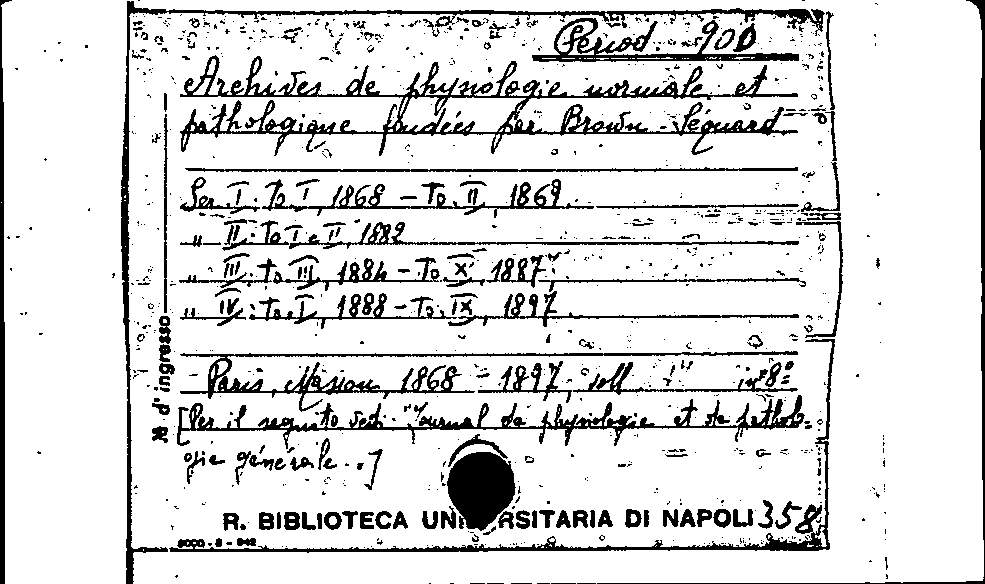 Period. 900
Archives de physiologie normale et
pathologique fondées par Brown-Séquard
Ser. I: To. I, 1868 – To. II, 1869.
" II: To I e II, 1882
" III: To III, 1884 – To. X, 1887;
" IV: To. I, 1888 – To. IX, 1897
Paris, Masson, 1868 – 1897, voll. in 8°
[Per il seguito vedi: "Journal de physiologie et de patholo=
gie générale..]
N d'ingresso
R. BIBLIOTECA UNIVERSITARIA DI NAPOLI 358